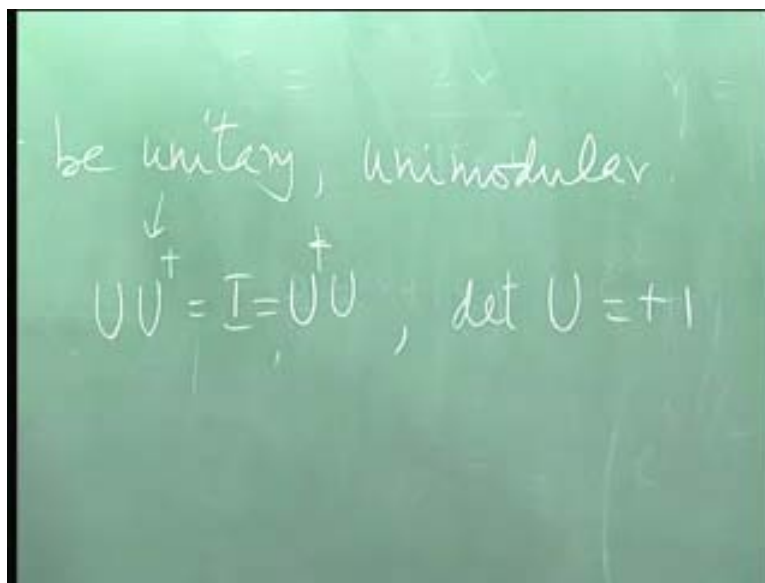 be unitary, unimodular.
↓
UU† = I = U†U, det U = +1